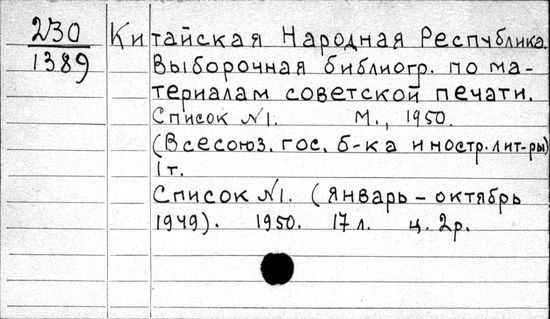 230
1389
Китайская Народная Республика.
Выборочная библиогр. по ма-
териалам советской печати.
Список №1. М., 1950.
(Всесоюз. гос. б-ка иностр. лит-ры)
1 т.
Список №1. (январь – октябрь
1949). 1950. 17 л. ц. 2р.